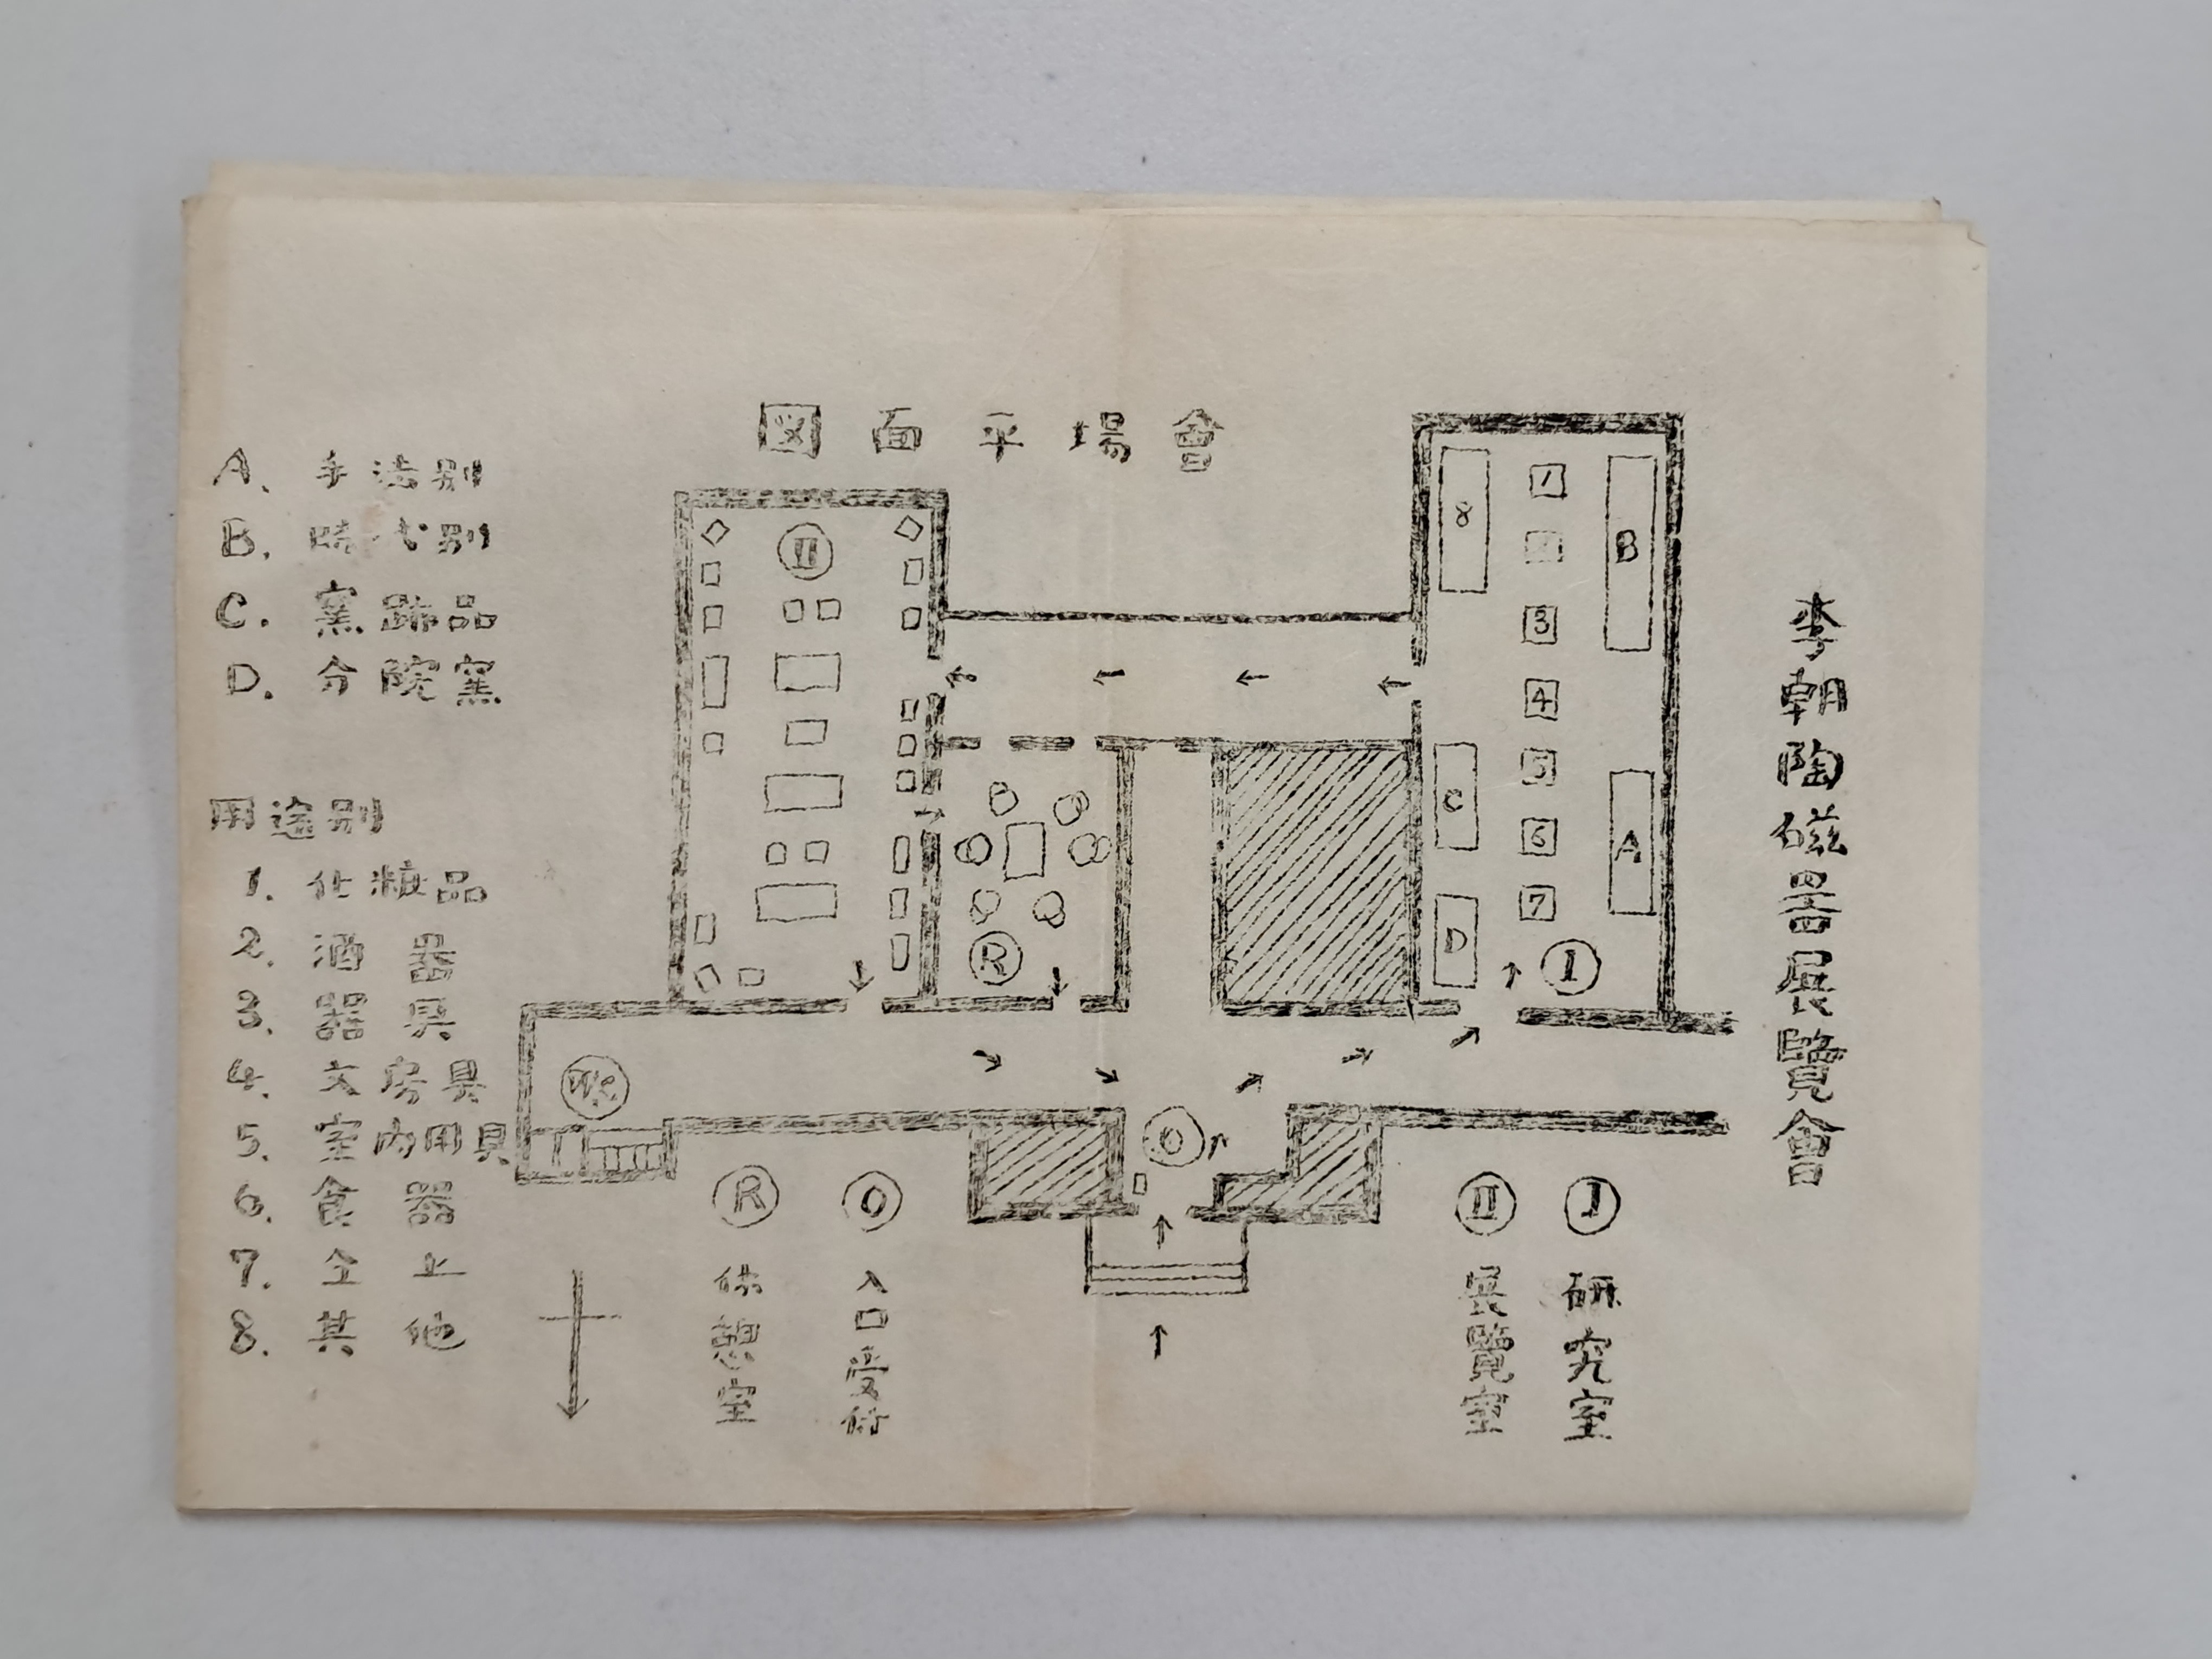 李朝陶磁器展覽會
會場平面図
A. 手法別
B. 時代別
C. 窯跡品
D. 分院窯
用途別
1. 化粧品
2. 酒器
3. 器具
4. 文房具
5. 室内用具
6. 食器
7. 仝上
8. 其他
II
8
1
2
3
4
5
6
7
B
A
C
D
I
R
W.C
O
I 研究室
II 展覽室
O 入口受付
R 休憩室